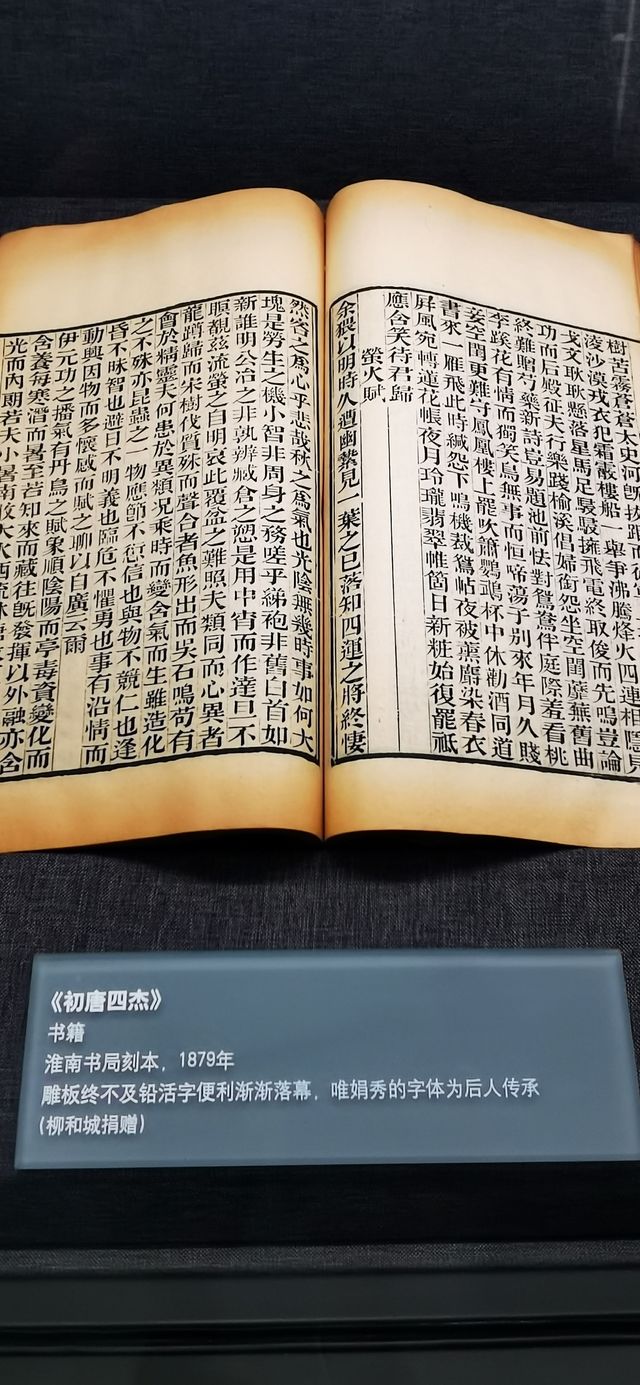 樹苦霧蒼蒼太史河旣拔距而從軍
淩沙漠戎衣犯霜霰樓船一舉爭沸騰烽火四連相隱見
戈文耿耿懸落星馬足駸駸擁飛電終取俊而先鳴豈論
功而后殿征夫行樂踐榆溪倡婦銜怨坐空閨蘼蕪舊曲
終難贈芍藥新詩豈易題池前怯對鴛鴦伴庭際羞看桃
李蹊花有情而獨笑鳥無事而恒啼蕩子別來年月久賤
妾空閨更難守鳳凰樓上罷吹簫鸚鵡杯中休勸酒同道
書來一雁飛此時緘怨下鳴機裁鴛帖夜被薰麝染春衣
屛風宛轉蓮花帳夜月玲瓏翡翠帷箇日新粧始復罷祗
應含笑待君歸
螢火賦
余猥以明時久遭幽縶見一葉之已落知四運之將終悽
然客之爲心乎悲哉秋之爲氣也光陰無幾時事如何大
塊是勞生之機小智非周身之務嗟乎綈袍非舊白首如
新誰明公冶之非孰辨臧倉之愬是用中宵而作達旦不
瞑覩兹流螢之自明哀此覆盆之難照夫類同而心異者
龍蹲歸而宋樹伐質殊而聲合者魚形出而吳石鳴苟有
會於精靈夫何患於異類况乘時而變含氣而生雖造化
之不殊亦昆蟲之一物應節不愆信也與物不競仁也逢
昏不昧智也避日不明義也臨危不懼勇也事有沿情而
動興因物而多懷感而賦之聊以自廣云爾
伊元功之播氣有丹鳥之賦象順陰陽而亭毒資變化而
含養每寒潛而暑至若知來而藏往旣發揮以外融亦含
光而內朗若夫小暑南
《初唐四杰》
书籍
淮南书局刻本，1879年
雕板终不及铅活字便利渐渐落幕，唯娟秀的字体为后人传承
(柳和城捐赠)